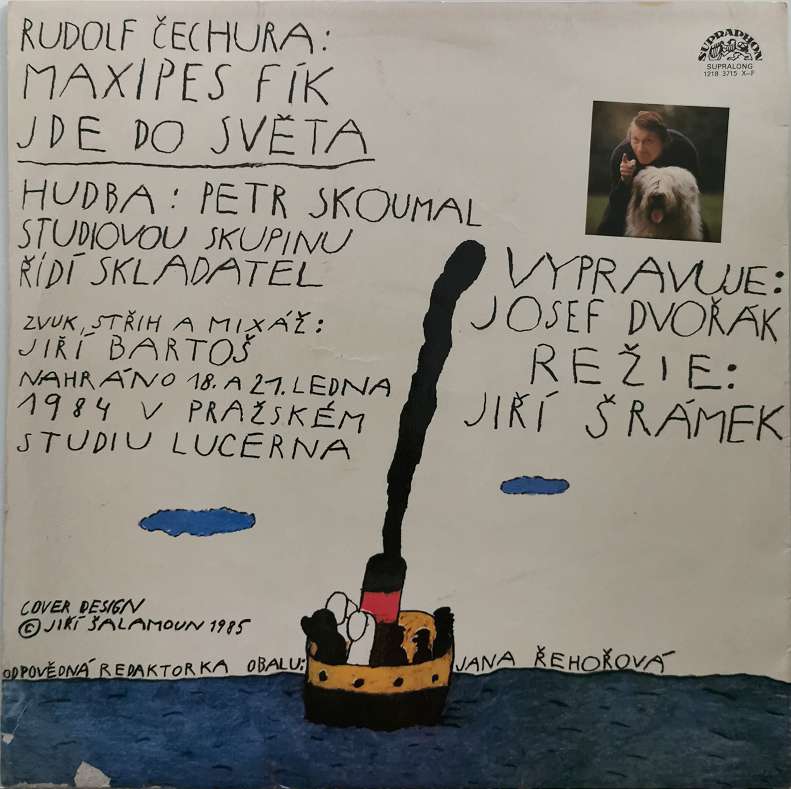 RUDOLF ČECHURA:
MAXIPES FÍK
JDE DO SVĚTA
SUPRAPHON
SUPRALONG
1218 3715 X–F
HUDBA: PETR SKOUMAL
STUDIOVOU SKUPINU
ŘÍDÍ SKLADATEL
ZVUK, STŘIH A MIXÁŽ:
JIŘÍ BARTOŠ
NAHRÁNO 18. A 21. LEDNA
1984 V PRAŽSKÉM
STUDIU LUCERNA
VYPRAVUJE:
JOSEF DVOŘÁK
REŽIE:
JIŘÍ ŠRÁMEK
COVER DESIGN
© JIŘÍ ŠALAMOUN 1985
ODPOVĚDNÁ REDAKTORKA OBALU: JANA ŘEHOŘOVÁ